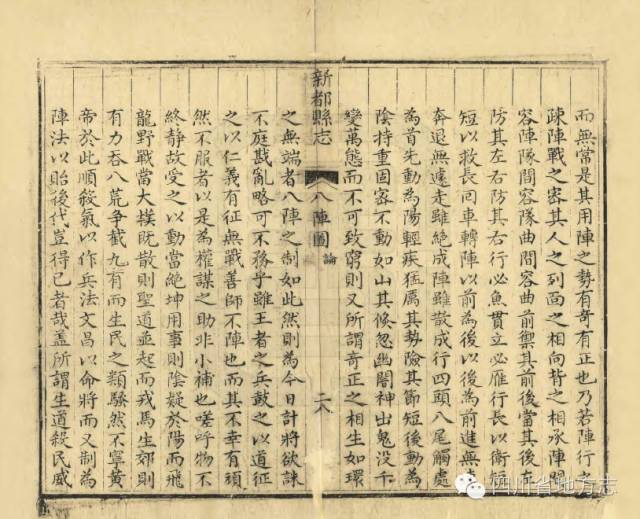 而無當是其用陣之勢有奇有正也乃若陣行之
疎陣戰之審其人之列面之相向背之相承陣間
容陣隊間容隊曲間容曲前禦其前後當其後左
防其左右防其右行必魚貫立必雁行長以衛
短以救長回車轉陣以前為後以後為前進無
奔退無遽走雖絕成陣雖散成行四頭八尾觸處
為首先動為陽輕疾猛厲其勢險其節短後動為
陰持重固密不動如山其倏忽幽闇神出鬼没千
變萬態而不可致窮則又所謂奇正之相生如環
新都縣志
八陣圖
論
二八
之無端者八陣之制如此然則為今日計將欲誅
不庭戡亂略可不務乎雖王者之兵鼓之以道征
之以仁義有征無戰善師不陣也而其不幸有頑
然不服者以是為權謀之助非小補也嗟呼物不
終静故受之以動當絶坤用事則陰疑於陽而飛
龍野戰當大樸既散則聖道並起而戎馬生郊則
有力吞八荒争截九有而生民之類騷然不寧黄
帝於此順殺氣以作兵法文昌以命將而又制為
陣法以貽後代豈得已者哉盖所謂生道殺民威
四川省地方志